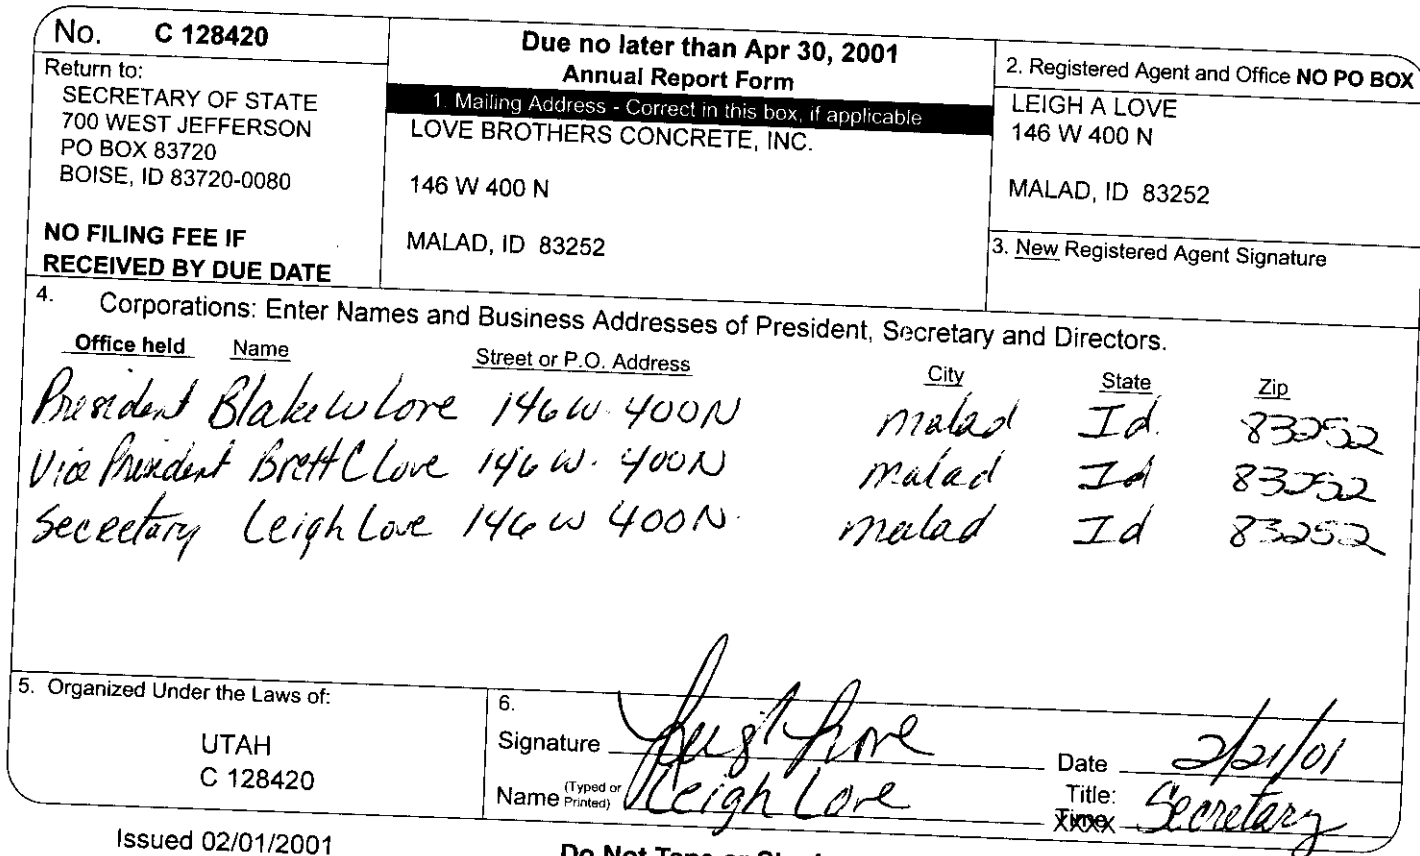 No. C 128420
Return to:
SECRETARY OF STATE
700 WEST JEFFERSON
PO BOX 83720
BOISE, ID 83720-0080
NO FILING FEE IF
RECEIVED BY DUE DATE
Due no later than Apr 30, 2001
Annual Report Form
1. Mailing Address - Correct in this box, if applicable
LOVE BROTHERS CONCRETE, INC.
146 W 400 N
MALAD, ID 83252
2. Registered Agent and Office NO PO BOX
LEIGH A LOVE
146 W 400 N
MALAD, ID 83252
3. New Registered Agent Signature
4. Corporations: Enter Names and Business Addresses of President, Secretary and Directors.
Office held Name Street or P.O. Address City State Zip
President Blake W Love 146 W. 400 N Malad Id. 83252
Vice President Brett C Love 146 W. 400 N Malad Id 83252
Secretary Leigh Love 146 W 400 N. Malad Id 83252
5. Organized Under the Laws of:
UTAH
C 128420
6.
Signature Leigh Love Date 2/21/01
Name (Typed or Printed) Leigh Love Title: Secretary
Issued 02/01/2001
Do Not Tape or